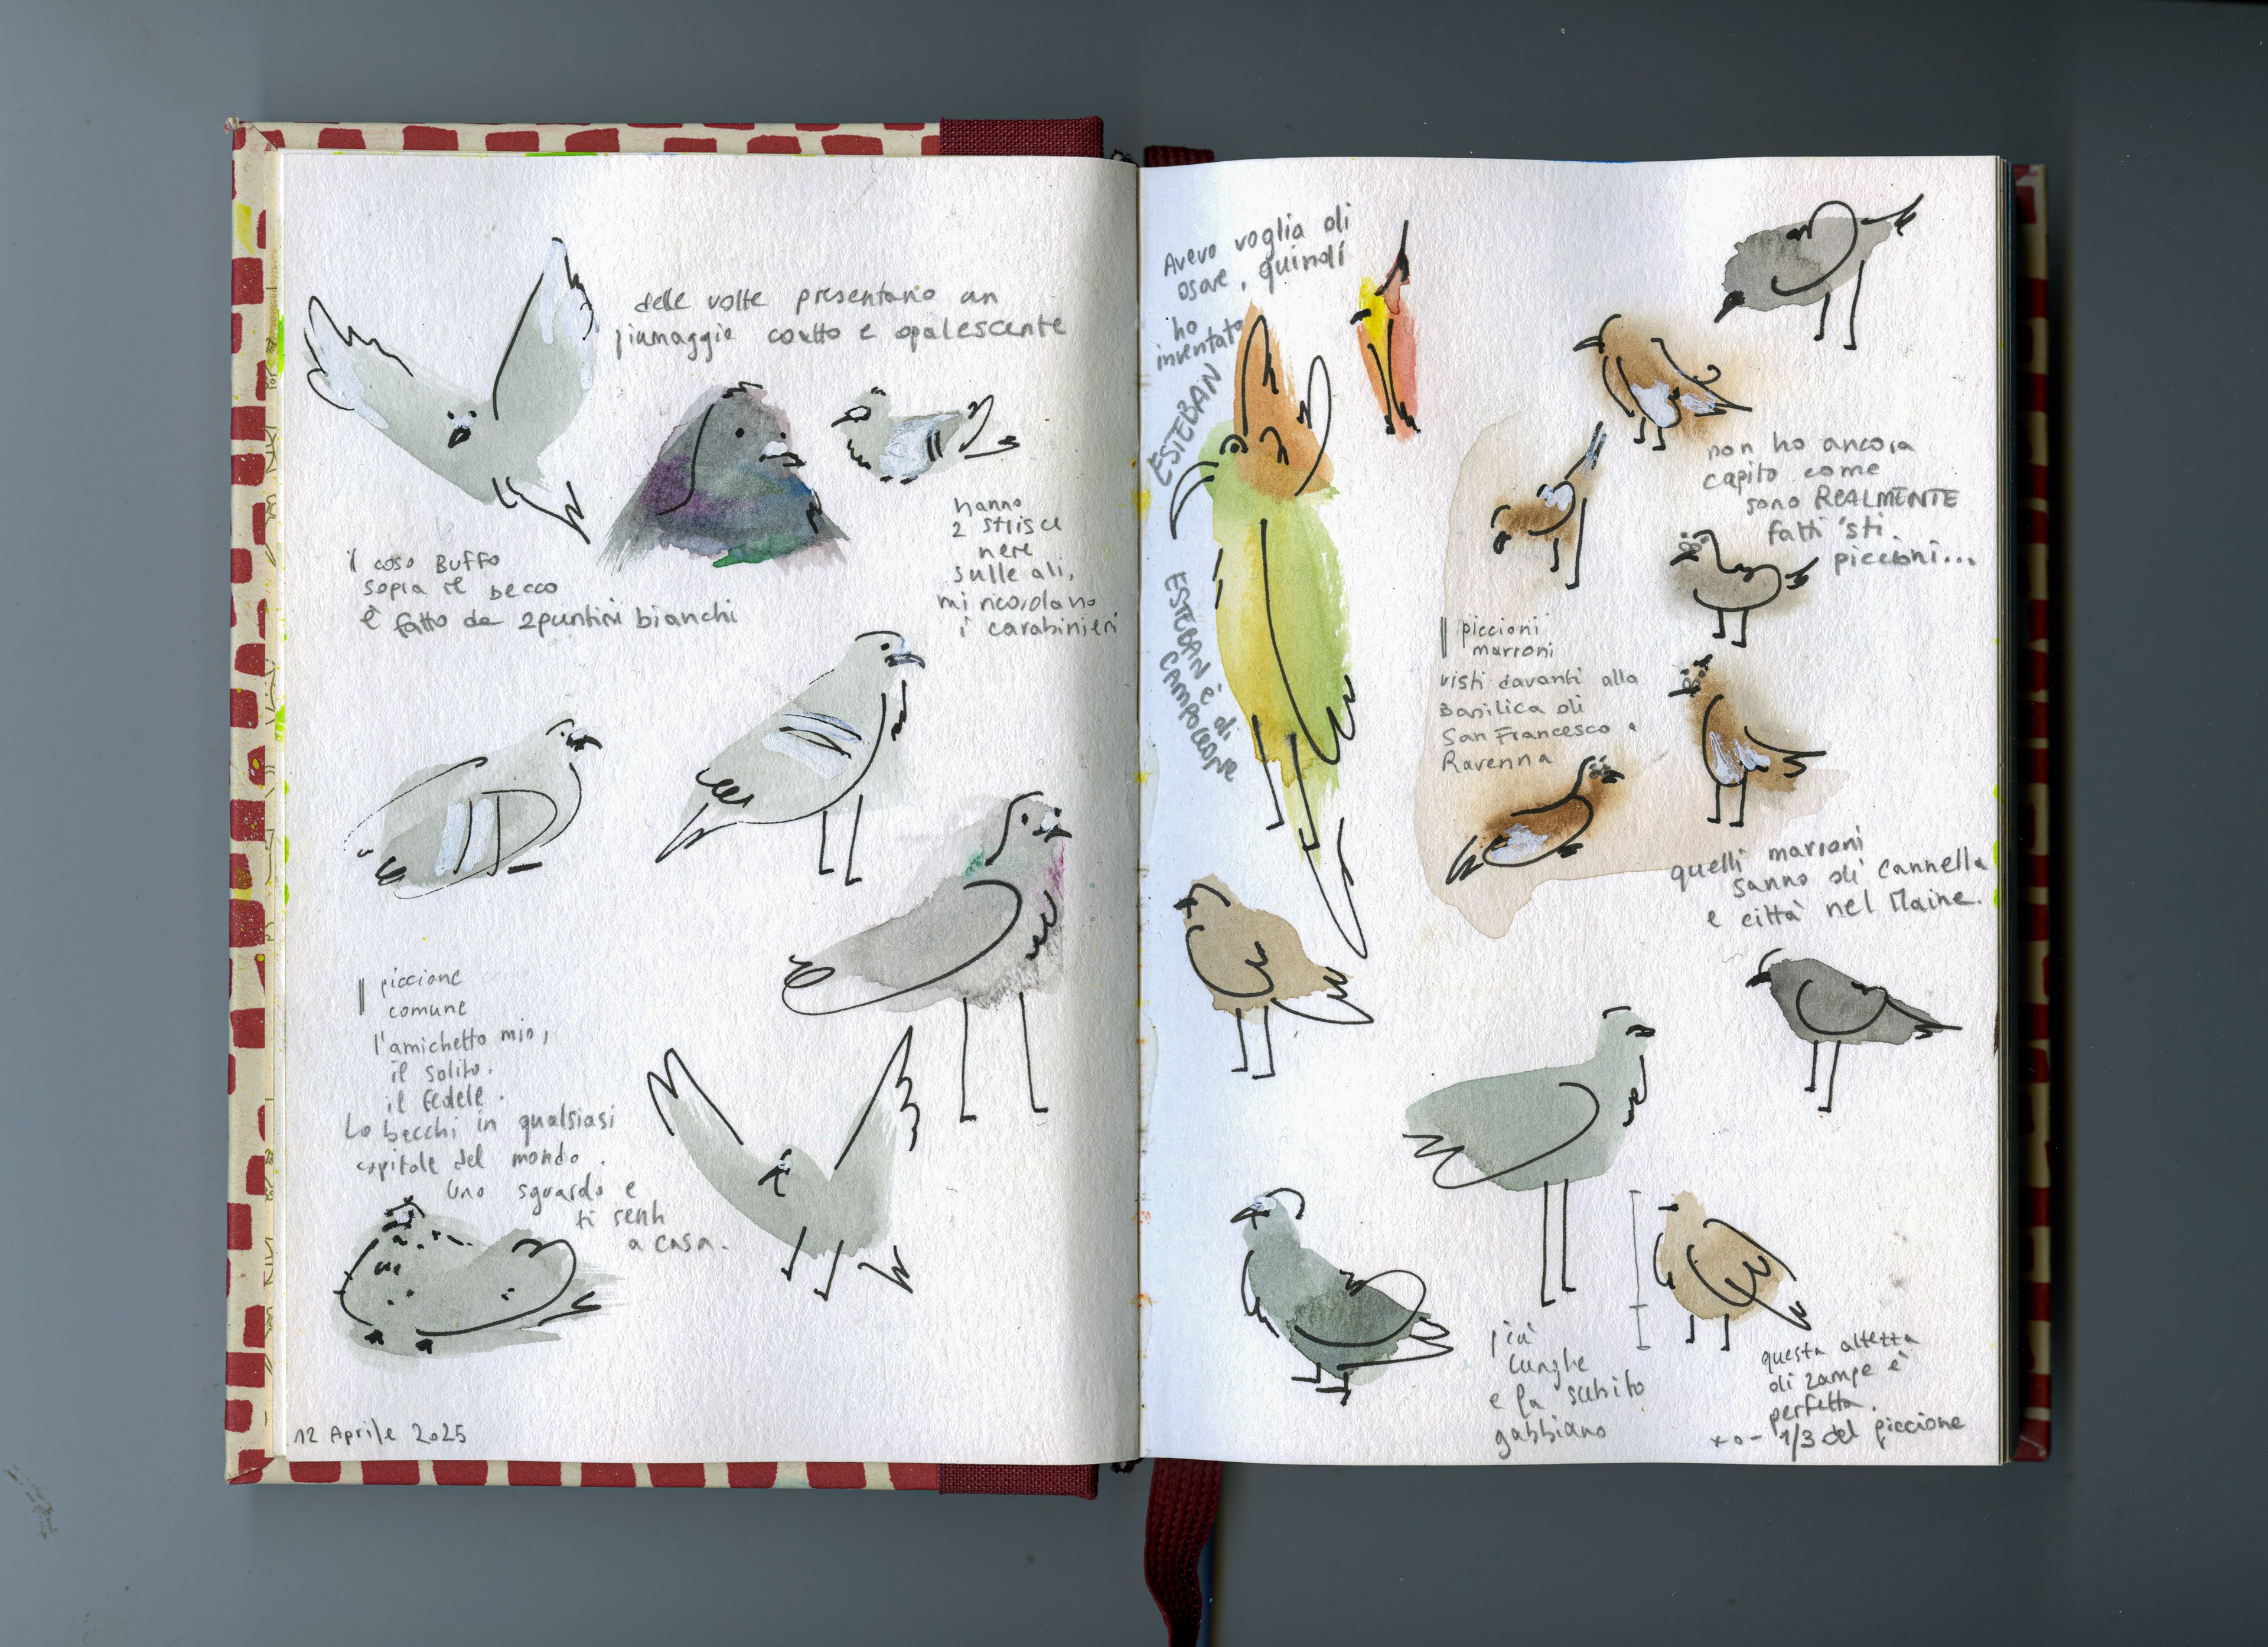 delle volte presentano un
piumaggio corto e opalescente
il coso BUFFO
sopra il becco
è fatto da 2 puntini bianchi
hanno
2 strisce
nere
sulle ali,
mi ricordano
i carabinieri
piccione
comune
l'amichetto mio,
il solito.
il fedele.
Lo becchi in qualsiasi
capitale del mondo.
Uno sguardo e
ti senti
a casa.
12 Aprile 2025
Avevo voglia di
osare, quindi
ho
inventato
ESTEBAN
ESTEBAN è di
CAMPOLEONE
non ho ancora
capito come
sono REALMENTE
fatti 'sti
piccioni...
piccioni
marroni
visti davanti alla
Basilica di
San Francesco a
Ravenna
quelli marroni
sanno di cannella
e città nel Maine.
più
lunghe
e fa subito
gabbiano
questa altezza
di zampe è
perfetta.
+ o - 1/3 del piccione